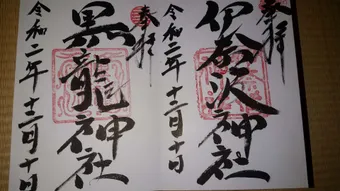 奉拝
伊奈波神社
令和二年十二月十日
奉拝
黒龍神社
令和二年十二月十日